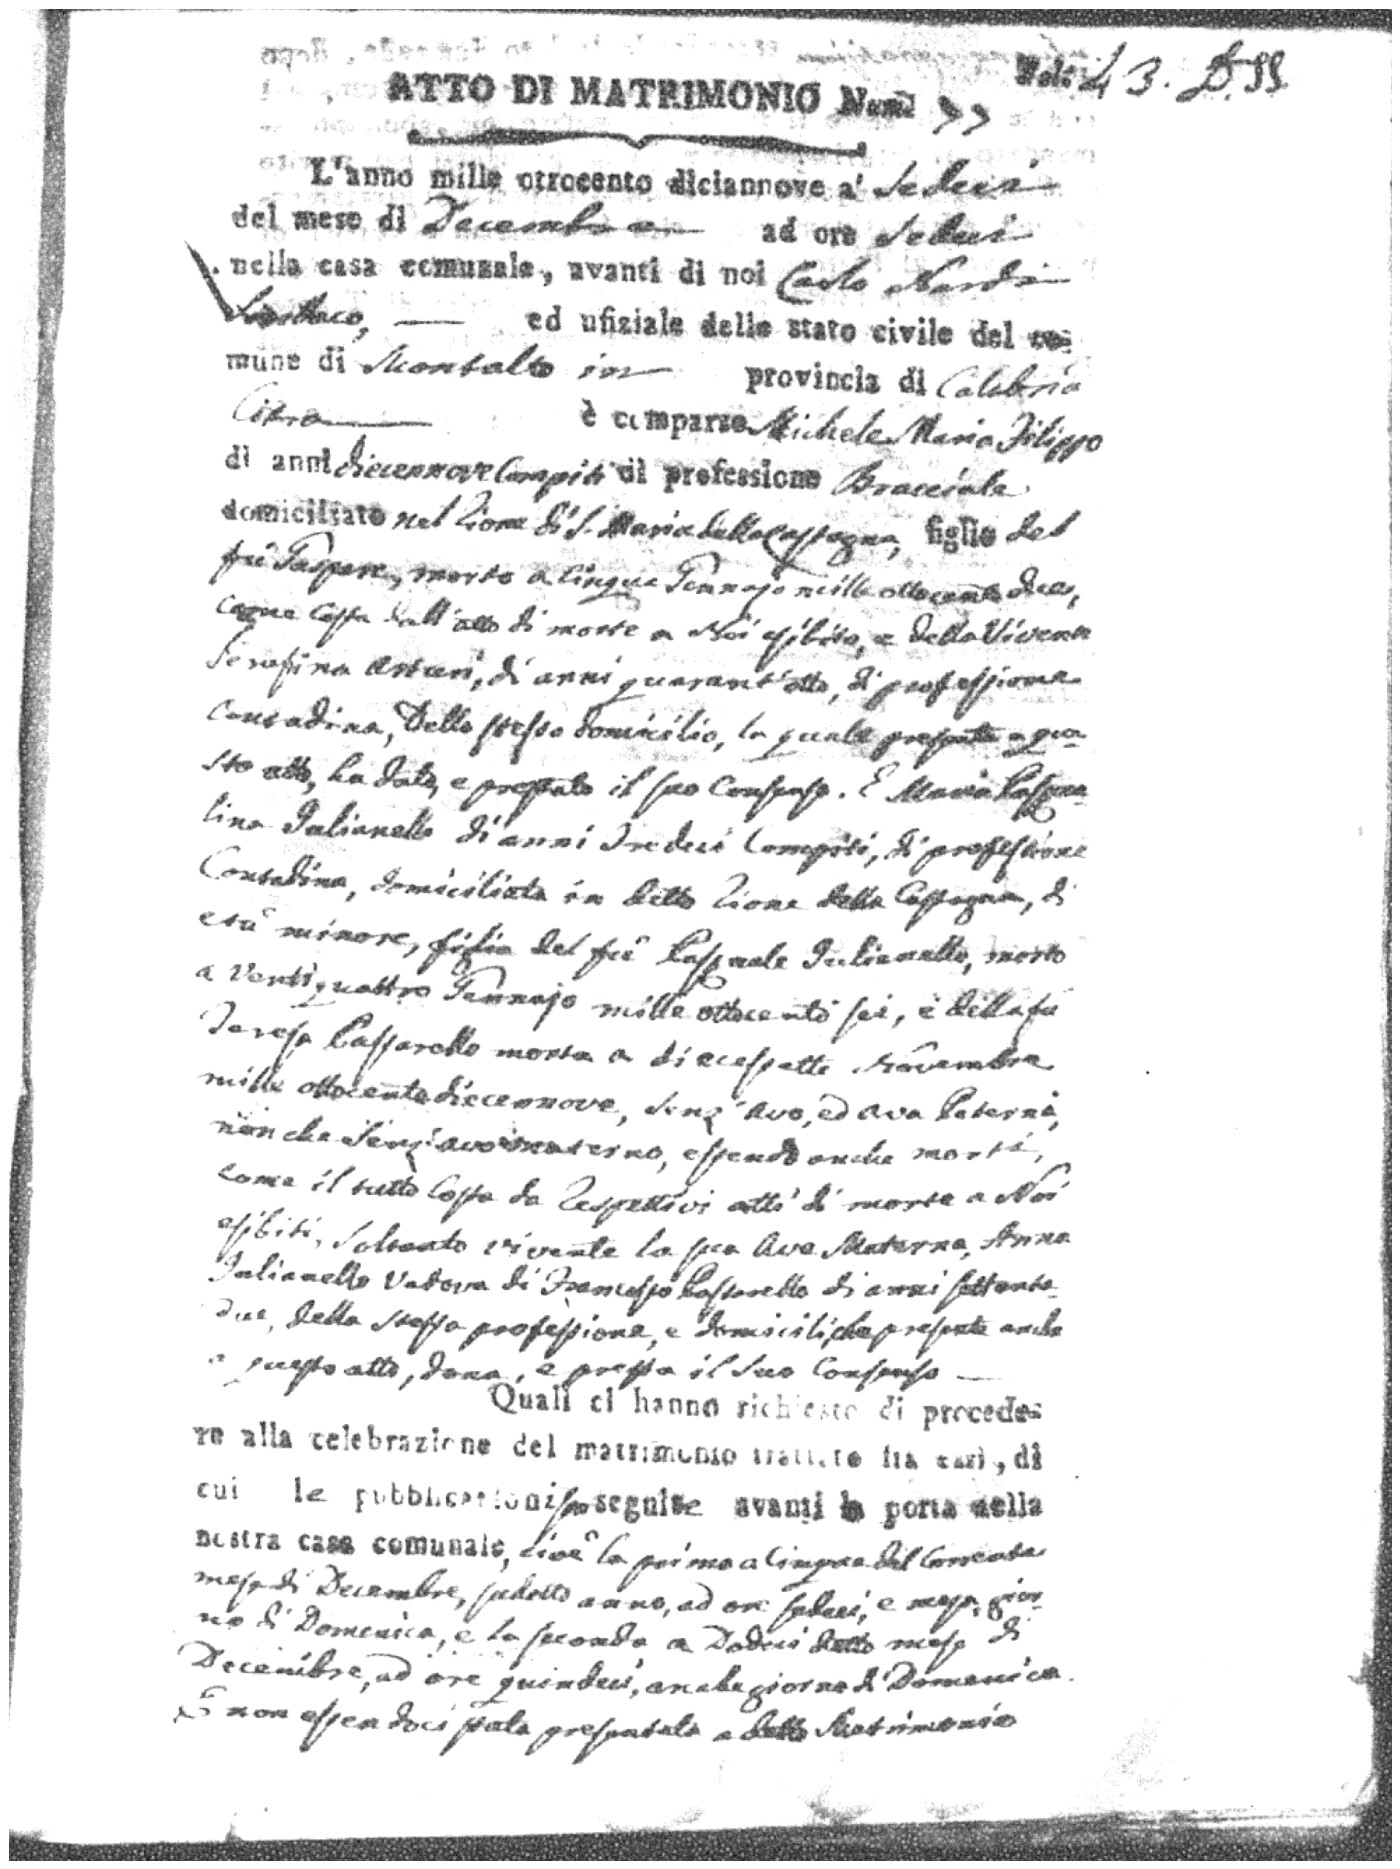 Fol: 43. D. SS
ATTO DI MATRIMONIO Num.
L'anno mille ottocento diciannove a' Sedeci
del mese di Decembre ad ore Sedeci
nella casa comunale, avanti di noi Carlo Nardi
Sindaco, ed ufiziale dello stato civile del co=
mune di Montalto in provincia di Calabria
Citra è comparso Michele Maria Filippo
di anni diecennove Compiti di professione Bracciale
domiciliato nel Rione di S. Maria della Castagna, figlio del
fù Gaspare, morto a Cinque Gennajo mille ottocento dieci,
come Costa dall'atto di morte a Noi esibito, e della Vivente
Serafina Arturi, di anni quarant'otto, di professione
Contadina, Dello stesso domicilio, la quale presente a que-
sto atto, ha dato, e prestato il suo Consenso. E Maria Pasqua-
lina Iulianello di anni Tredeci Compiti, di professione
Contadina, domiciliata in detto Rione della Castagna, di
età minore, figlia del fù Pasquale Iulianello, morto
a Ventiquattro Gennajo mille ottocento sei, e della fù
Teresa Passarello morta a diecessette Novembre
mille ottocento diecennove, Senz'avo, ed ava Paterni,
non che Senz'avo materno, essendo anche morti,
come il tutto Costa da Respettivi atti di morte a Noi
esibiti, Soltanto vivente la sua Ava Materna, Anna
Iulianello Vedova di Francesco Passarello di anni settanta-
due, della stessa professione, e domicilio, che presente anche
a questo atto, dona, e presta il Suo Consenso
Quali ci hanno richiesto di procede=
re alla celebrazione del matrimonio trattato fra essi, di
cui le pubblicazioni so seguite avanti la porta della
nostra casa comunale, cioè la prima a Cinque del Corrente
mese di Decembre, sudetto anno, ad ore sedeci, e meza, gior-
no di Domenica, e la seconda a Dodeci detto mese di
Decembre, ad ore quindeci, anche giorno di Domenica.
E non essendoci stata presentata a detto Matrimonio